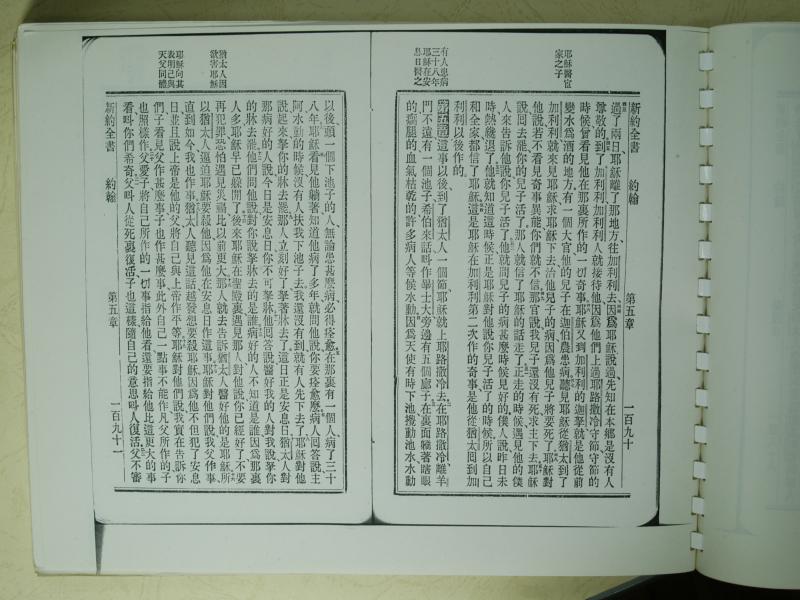 耶穌醫官
家之子
有人患病
三十八年
耶穌在安
息日醫之
新約全書 約翰 第五章 一百九十
過了兩日、耶穌離了那地方、往加利利去、因爲耶穌說過、先知在本鄉是沒有人
尊敬的、到了加利利、加利利人就接待他、因爲他們上過耶路撒冷守節、守節的
時候、曾看見他在那裏所作的一切奇事、耶穌又到加利利的迦拏、就是他從前
變水爲酒的地方、有一個大官、他的兒子在迦伯農患病、聽見耶穌從猶太到了
加利利、就來見耶穌、求耶穌下去治他兒子的病、因爲他兒子將要死了、耶穌對
他說、若不看見奇事異能、你們就不信、那官說、我兒子還沒有死、求主下去、耶穌
說、回去罷、你的兒子活了、那人就信了耶穌的話走了、正走的時候、遇見他的僕
人來告訴他說、你兒子活了、他就問兒子的病甚麼時候見好的、僕人說、昨日未
時熱纔退了、他就知道這時候正是耶穌對他說你兒子活了的時候、所以自己
和全家都信了耶穌、這是耶穌在加利利第二次作的奇事、是他從猶太囘到加
利利以後作的、
第五章 這事以後、到了猶太人一個節、耶穌就上耶路撒冷去、在耶路撒冷離羊
門不遠、有一個池子、希伯來話叫作畢士大、旁邊有五個廊子、在裏面躺著瞎眼
的、瘸腿的、血氣枯乾的、許多病人、等候水動、因爲天使有時下池攪動池水、水動
猶太人因
欲害耶穌
耶穌向其
表明己與
天父同體
以後、頭一個下池子的人、無論患甚麼病、必得痊愈、在那裏有一個人、病了三十
八年、耶穌看見他躺著、知道他病了多年、就問他說、你要痊愈麼、病人囘答說、主
阿、水動的時候、沒有人扶我下池子去、我還沒有到、就有人先下去了、耶穌對他
說、起來、拏你的牀去罷、那人立刻好了、拏著牀走了、這日正是安息日、猶太人對
那病好的人說、今日是安息日、你不可拏牀、他囘答說、醫好我的人、對我說、拏你
的牀去罷、他們問他說、對你說拏牀去的是誰、病好的人不知道是誰、因爲那裏
人多、耶穌早已躱開了、後來耶穌在聖殿裏遇見那人、對他說、你已經好了、不要
再犯罪、恐怕遇見災禍、比以前更大、那人就去告訴猶太人、醫好他的是耶穌、所
以猶太人逼迫耶穌、要殺他、因爲他在安息日作這事、耶穌對他們說、我父作事、
直到如今、我也作事、猶太人聽見這話、越發想要殺耶穌、因爲他不但犯了安息
日、並且說上帝是他的父、將自己與上帝作平等、耶穌對他們說、我實在告訴你
們、子看見父作甚麼事、子也作甚麼事、此外自己一點事不能作、凡父所作的、子
也照樣作、父愛子、將自己所作的一切事指給他看、還要指給他比這更大的事
看、叫你們希奇、父叫人從死裏復活、子也這樣隨自己的意思叫人復活、父不審
新約全書 約翰 第五章 一百九十一